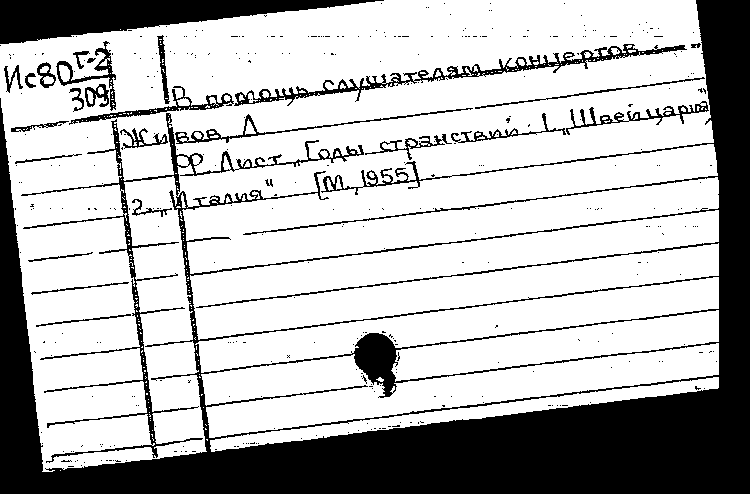 Ис80 Г-2
309
В помощь слушателям концертов.
Живов, Л
Ф. Лист „Годы странствий: 1. „Швейцария",
2. „Италия". [М., 1955].